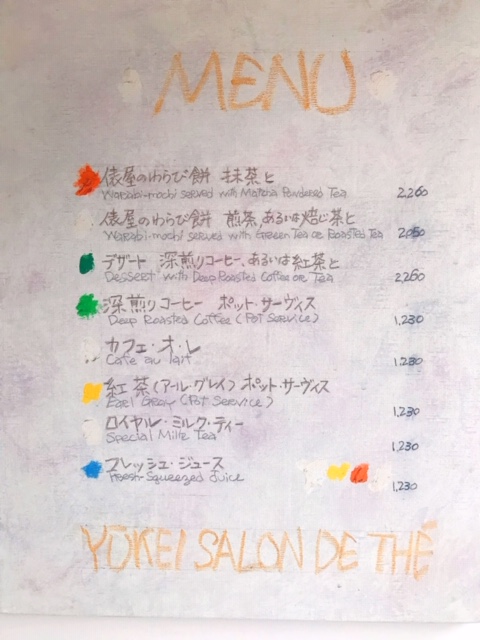 MENU
俵屋のわらび餅 抹茶と
Warabi-mochi served with Matcha Powdered Tea
2,260
俵屋のわらび餅 煎茶、あるいは焙じ茶と
Warabi-mochi served with Green Tea or Roasted Tea
2,050
デザート 深煎りコーヒー、あるいは紅茶と
Dessert with Deep Roasted Coffee or Tea
2,260
深煎りコーヒー ポット・サーヴィス
Deep Roasted Coffee (Pot Service)
1,230
カフェ・オ・レ
Cafe au lait
1,230
紅茶(アール・グレイ)ポット・サーヴィス
Earl Gray (Pot Service)
1,230
ロイヤル・ミルク・ティー
Special Milk Tea
1,230
フレッシュ・ジュース
Fresh Squeezed Juice
1,230
YŪKEI SALON DE THÉ